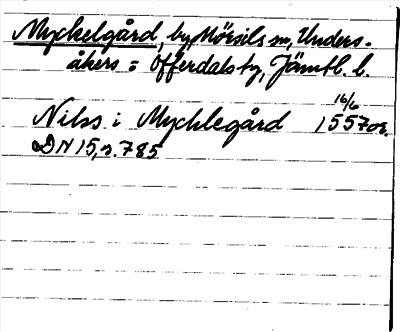 Myckelgård, by, Mörsils sn, Unders-
åkers o Offerdals tg, Jämtl. l.
16/6
Nilss i Mychlegård 1557 or.
DN 15, s. 785